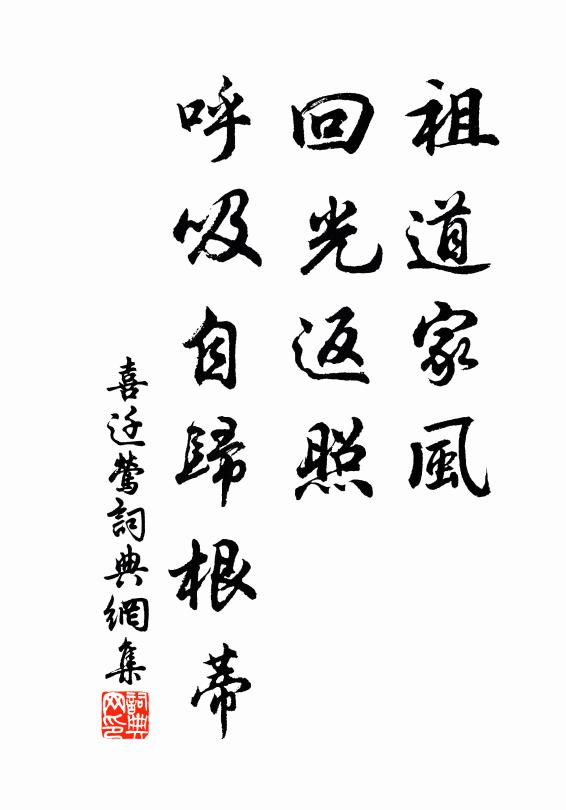 祖道家風
回光返照
呼吸自歸根蒂
喜迁鶯詞典網集
詞典
网印